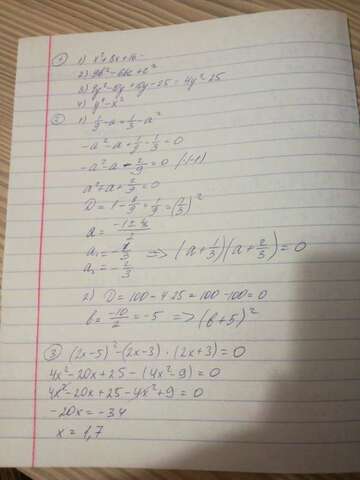 ① 1) x²+8x+16
2) 9b²-6bc+c²
3) 4y²-10y+10y-25=4y²-25
4) y⁴-x²
② 1) 1/9-a=1/3-a²
-a²-a+1/9-1/3=0
-a²-a-2/9=0 /(-1)
a²+a+2/9=0
D=1-8/9=1/9=(1/3)²
a=(-1±1/3)/2
a₁=-1/3 => (a+1/3)(a+2/3)=0
a₂=-2/3
2) D=100-4·25=100-100=0
b=-10/2=-5 => (b+5)²
③ (2x-5)²-(2x-3)·(2x+3)=0
4x²-20x+25-(4x²-9)=0
4x²-20x+25-4x²+9=0
-20x=-34
x=1,7